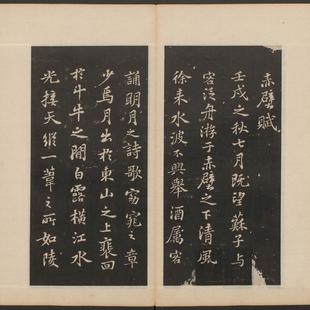 赤壁賦
壬戌之秋七月既望蘇子与
客泛舟游于赤壁之下清風
徐来水波不興舉酒属客
誦明月之詩歌窈窕之章
少焉月出於東山之上裵回
於斗牛之間白露橫江水
光接天縱一葦之所如陵